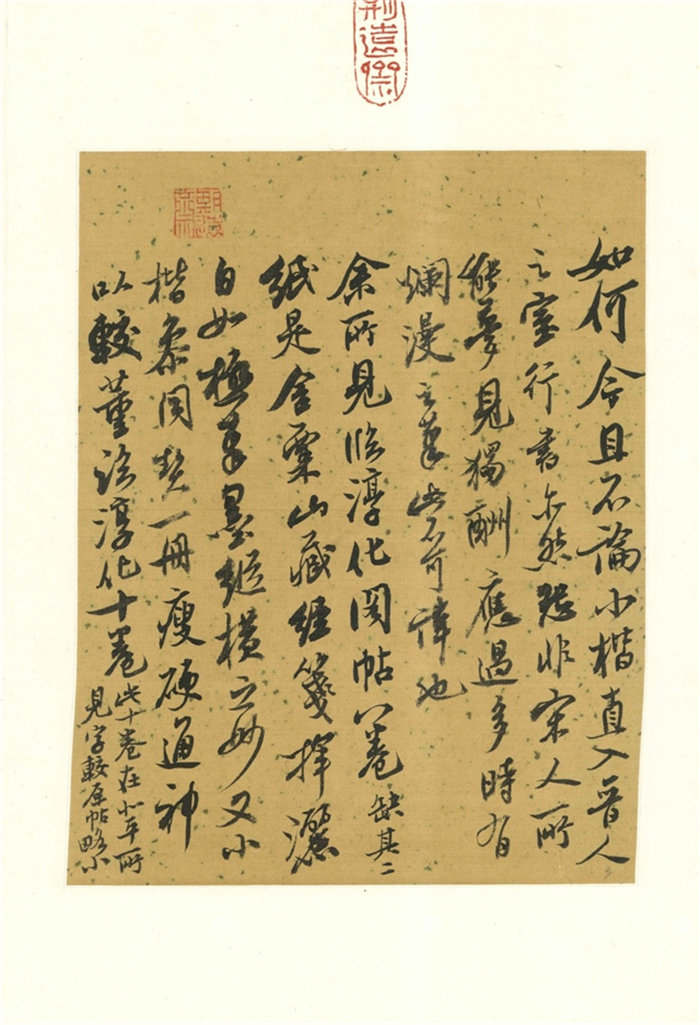 如何今且不論小楷直入晉人
之室行書亦然殆非宋人所
能夢見獨酬應過多時有
爛漫之筆此不可諱也
余所見臨淳化閣帖八卷 缺其二
紙是金粟山藏經箋揮灑
自如極筆墨縱橫之妙又小
楷參同契一冊瘦硬通神
以較董臨淳化十卷
此十卷在北平所
見字較原帖略小